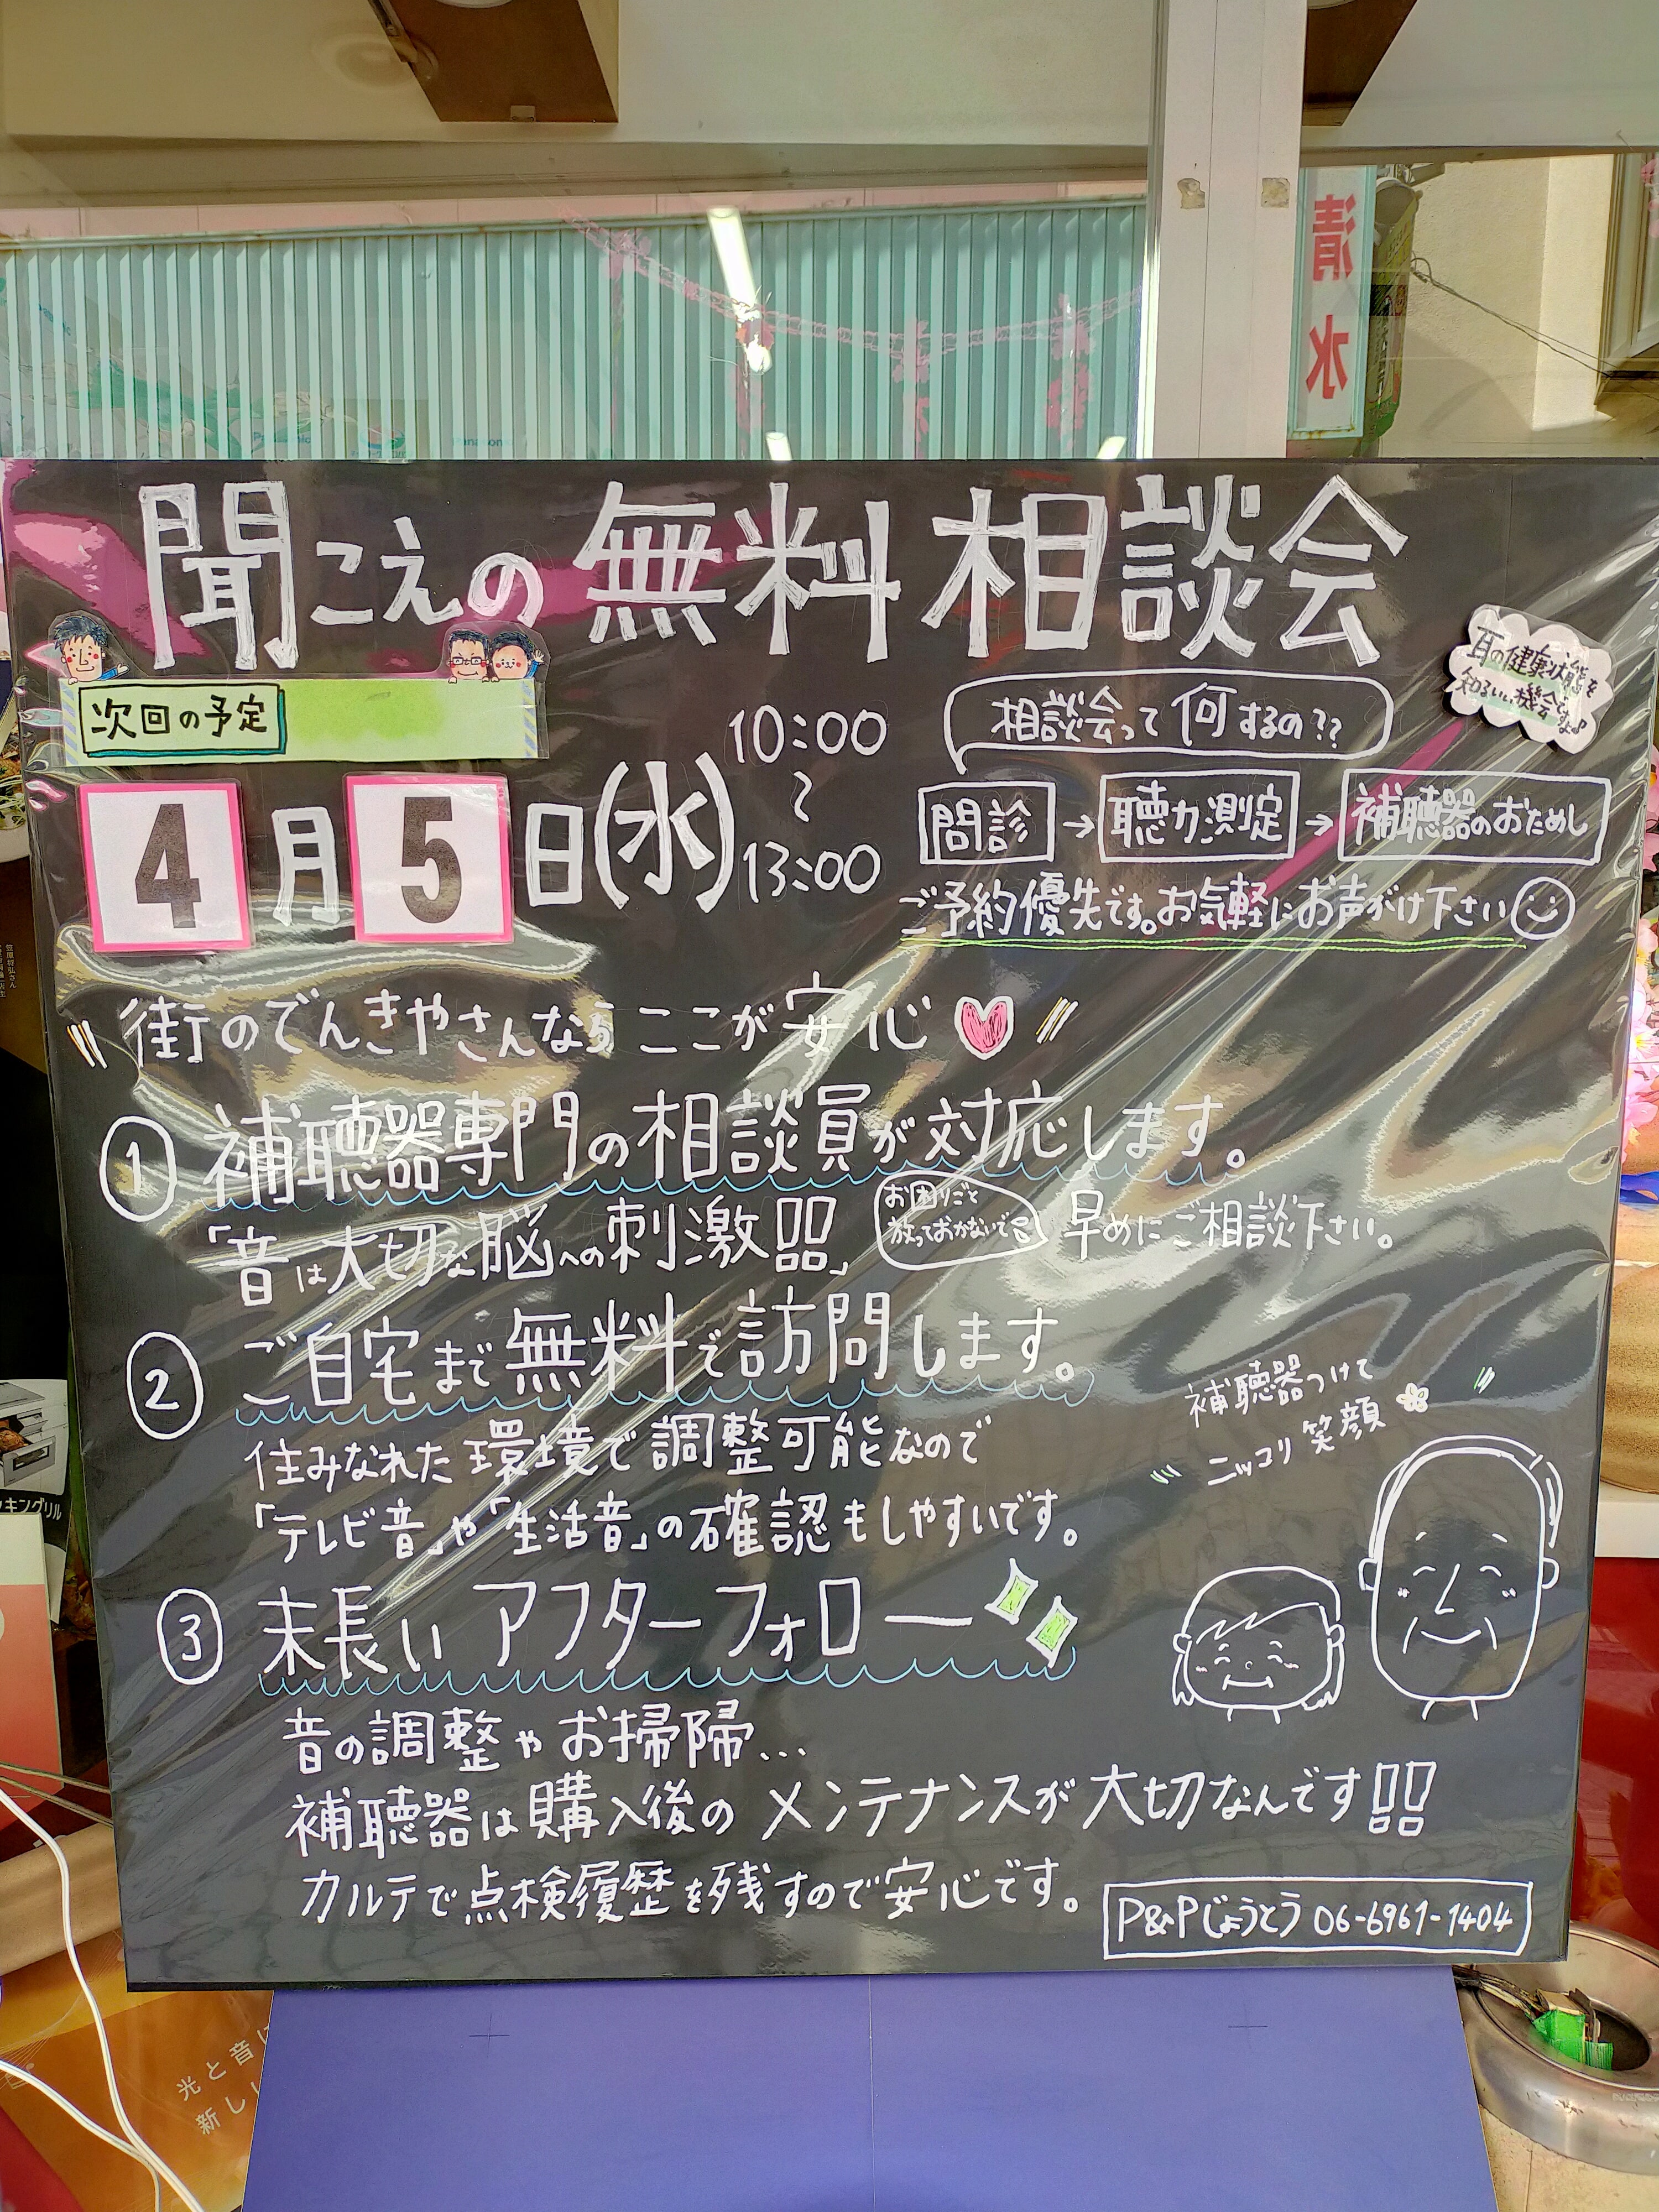 清水
聞こえの無料相談会
耳の健康状態を
知るいい機会ですよ♪
次回の予定
4月5日(水)
10:00
〜
13:00
相談会って何するの??
問診→聴力測定→補聴器のおためし
ご予約優先です。お気軽にお声がけ下さい
街のでんきやさんなら ここが安心
① 補聴器専門の相談員が対応します。
「音は大切な脳への刺激器」
お困りごと
放っておかないで
早めにご相談下さい。
② ご自宅まで無料で訪問します。
住みなれた環境で調整可能なので
「テレビ音」や「生活音」の確認もしやすいです。
補聴器つけて
ニッコリ 笑顔
③ 末長い アフターフォロー
音の調整やお掃除...
補聴器は購入後のメンテナンスが大切なんです!!
カルテで点検履歴を残すので安心です。
P&Pじょうとう 06-6961-1404
ッキングリル
光と音
新し